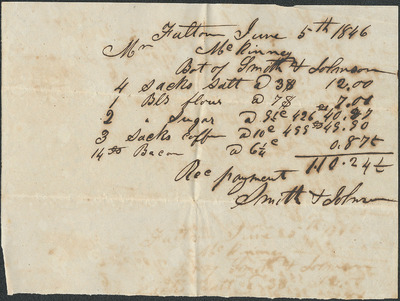 Fulton June 5th 1846
Mr McKinney
Bot of Smith & Johnson
4 Sacks Salt @ 3$ 12.00
1 Bbl flour @ 7$ 7.00
2 " Sugar @ 9½c 426 40.47
3 Sacks coffee @ 10c 498 49.80
14 Bacon @ 6¼c 0.87½
110.24½
Rec payment
Smith & Johnson